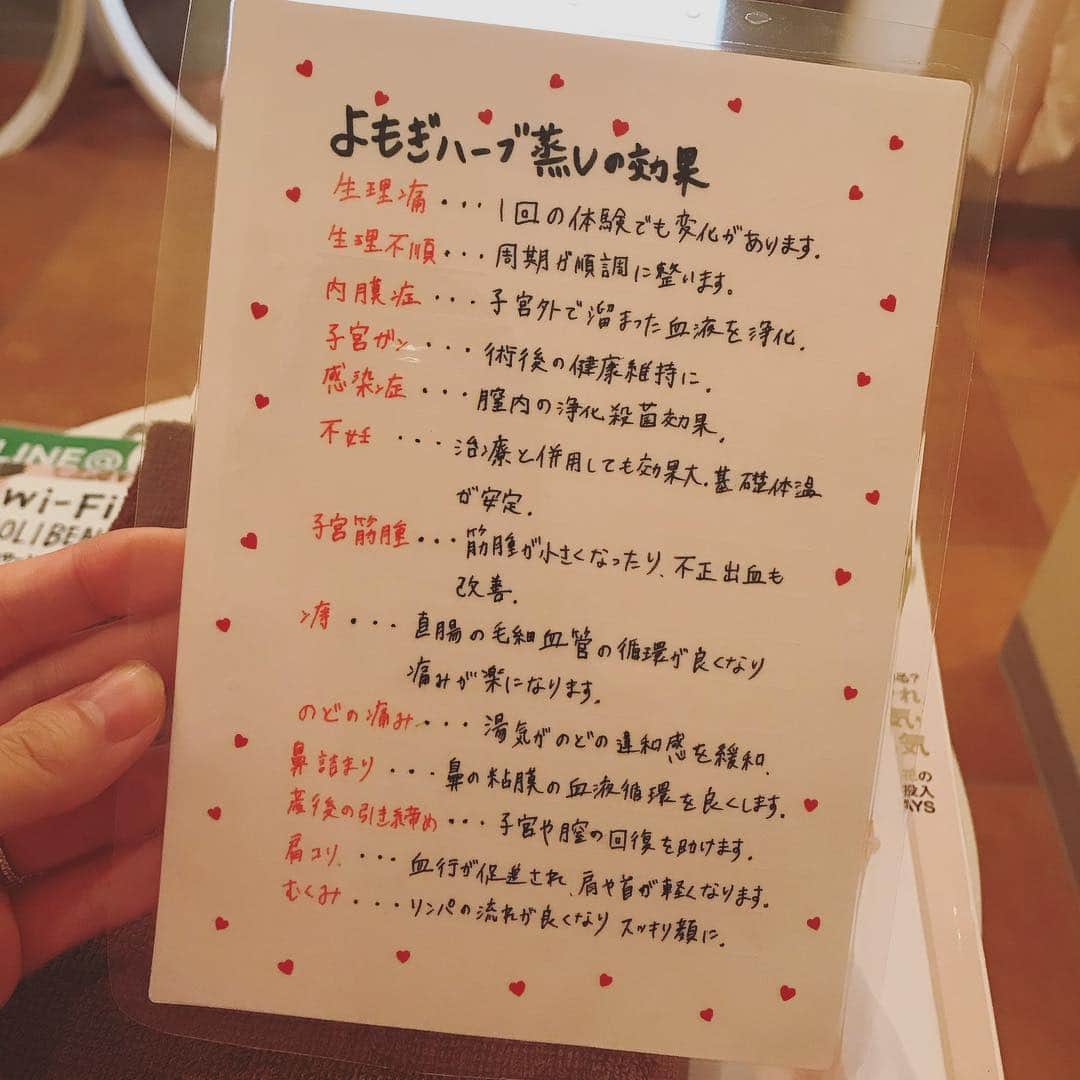 よもぎハーブ蒸しの効果
生理痛・・・1回の体験でも変化があります。
生理不順・・・周期が順調に整います。
内膜症・・・子宮外で溜まった血液を浄化.
子宮ガン・・・術後の健康維持に.
感染症・・・膣内の浄化殺菌効果.
不妊・・・治療と併用しても効果大.基礎体温
が安定.
子宮筋腫・・・筋腫が小さくなったり、不正出血も
改善.
痔・・・直腸の毛細血管の循環が良くなり
痛みが楽になります。
のどの痛み・・・湯気がのどの違和感を緩和.
鼻詰まり・・・鼻の粘膜の血液循環を良くします。
産後の引き締め・・・子宮や膣の回復を助けます。
肩コリ・・・血行が促進され、肩や首が軽くなります。
むくみ・・・リンパの流れが良くなりスッキリ顔に.
LINE@
Wi-Fi
OLIBEN
る?
れ
気
の
投入
AYS